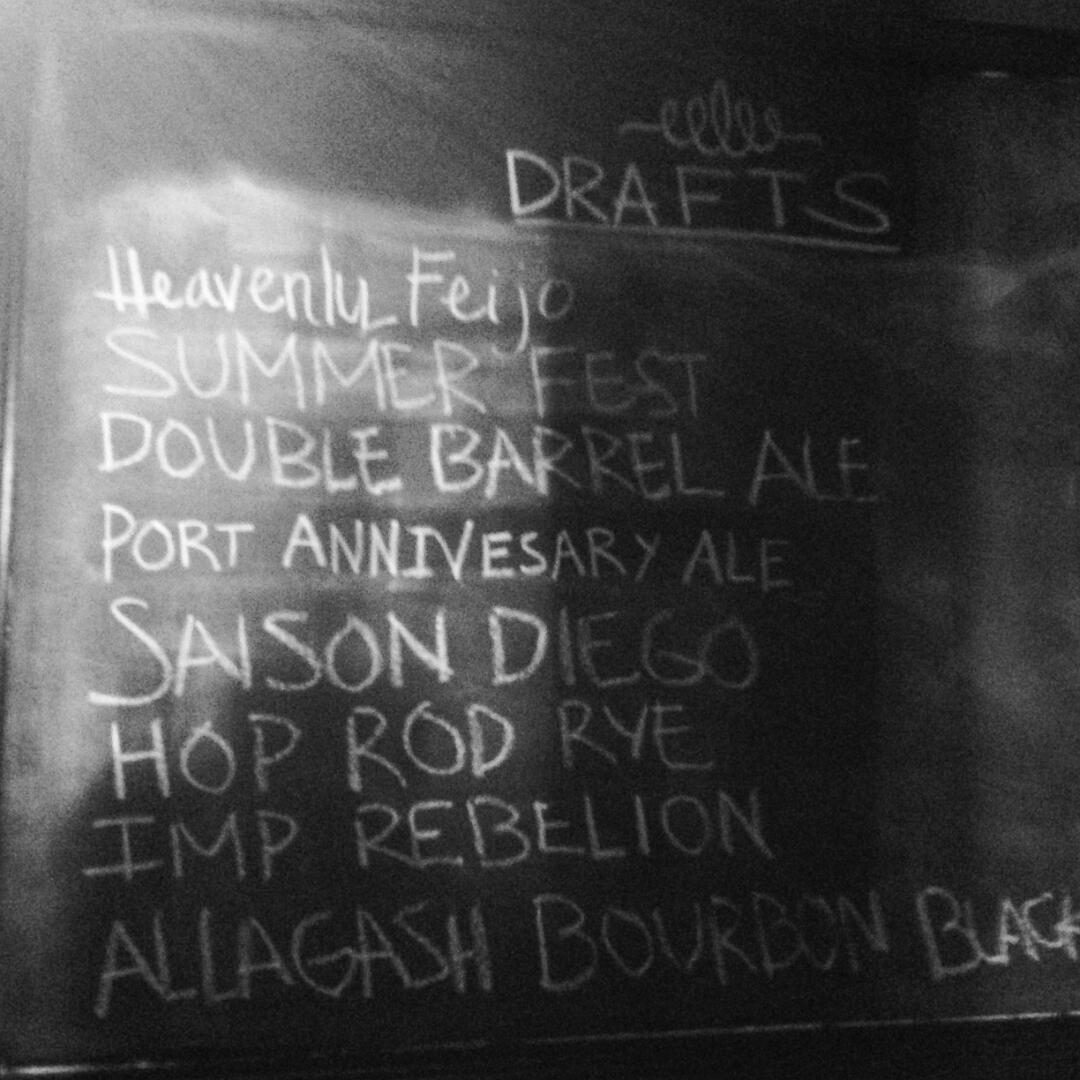 DRAFTS
Heavenly Feijo
SUMMER FEST
DOUBLE BARREL ALE
PORT ANNIVESARY ALE
SAISON DIEGO
HOP ROD RYE
IMP REBELION
ALLAGASH BOURBON BLACK